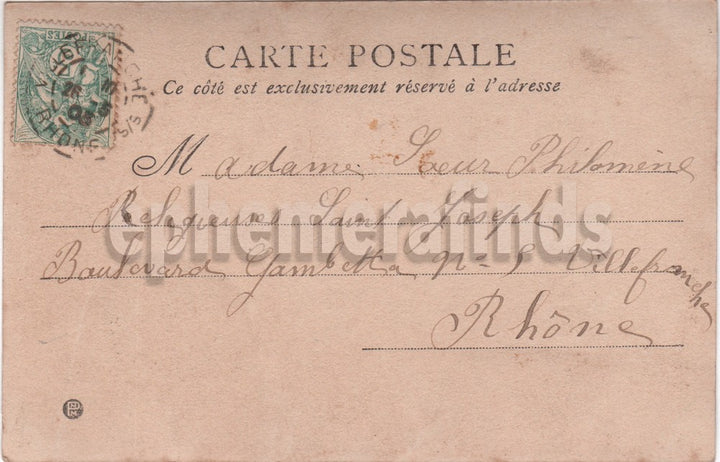 CARTE POSTALE
Ce côté est exclusivement réservé à l'adresse
Madame Sœur Philomène
Religieuses Saint Joseph
Boulevard Gambetta N° 5 Villefranche
Rhône
ephemerafinds
RHONE